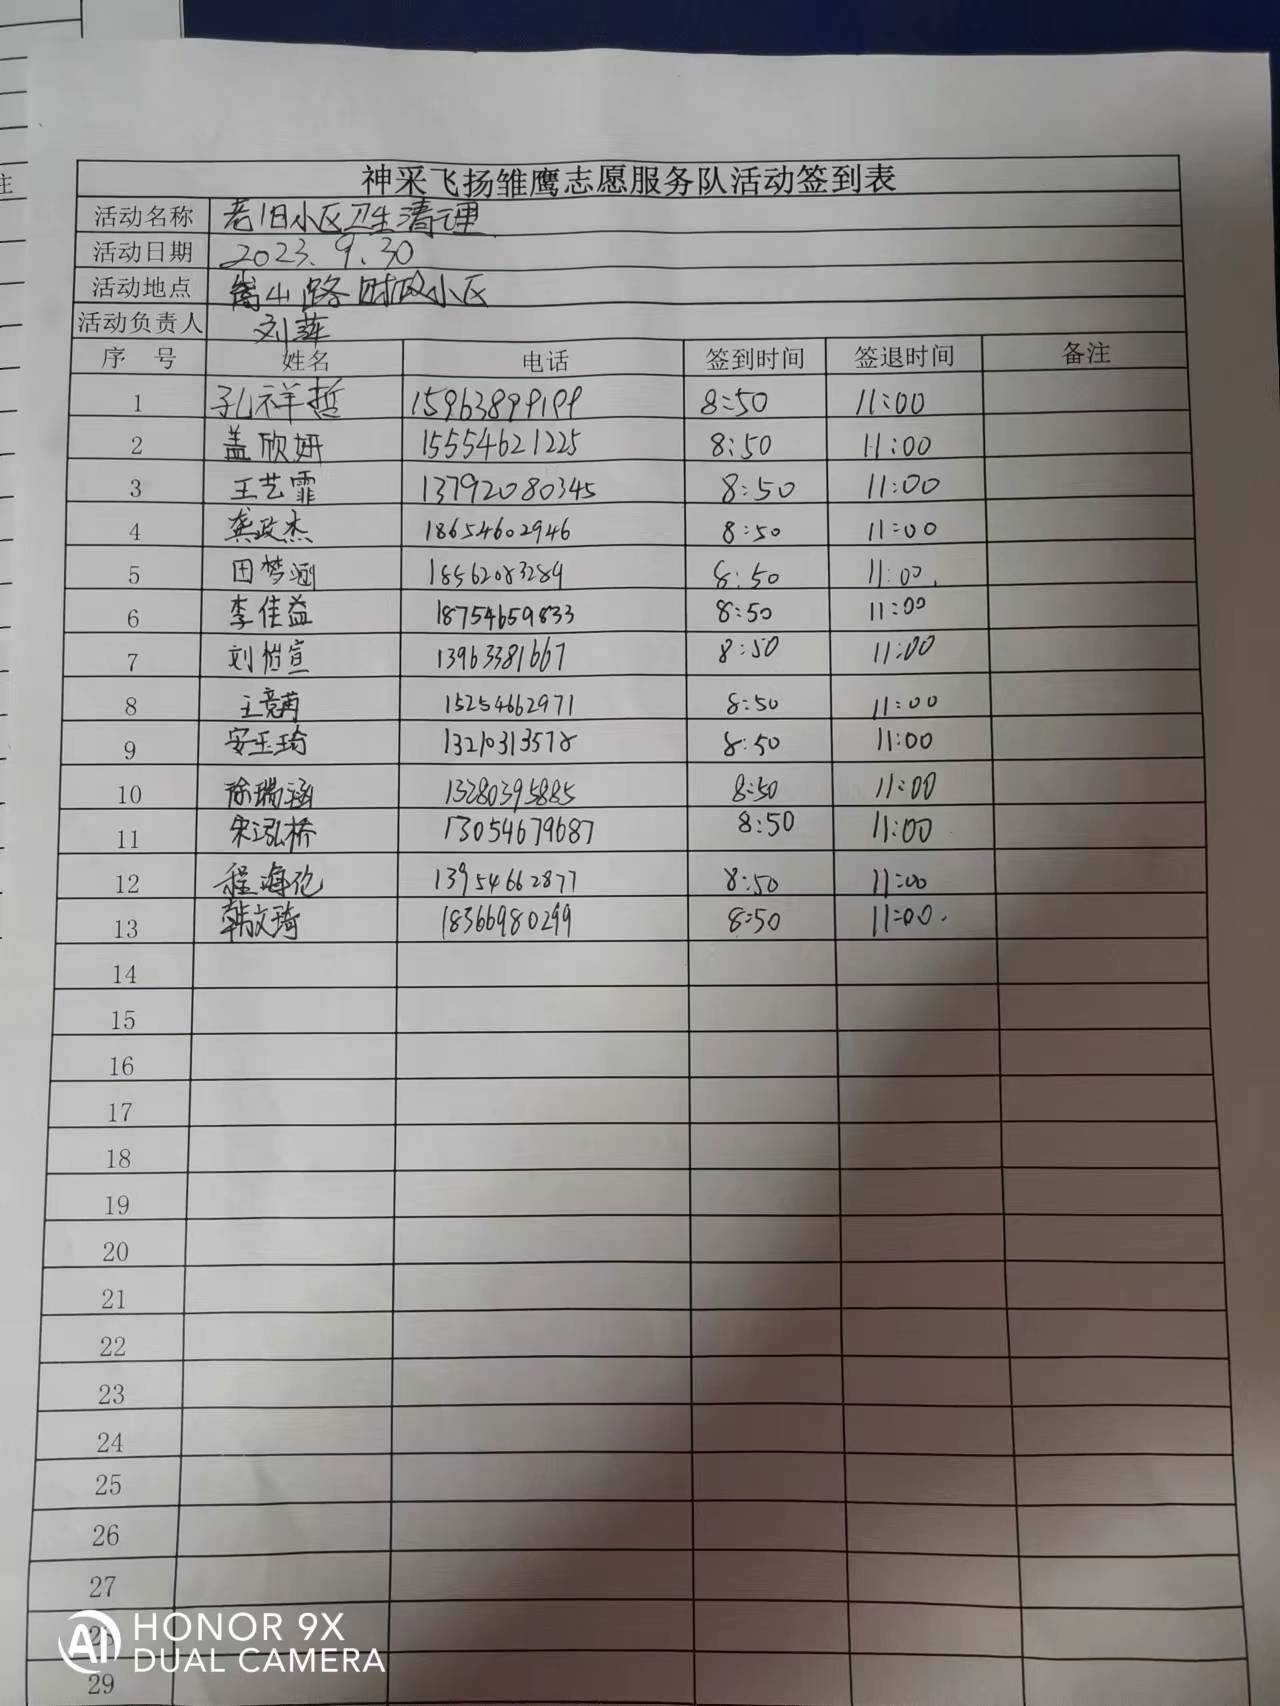 注
神采飞扬雏鹰志愿服务队活动签到表
活动名称 老旧小区卫生清理
活动日期 2023.9.30
活动地点 嵩山路财政小区
活动负责人 刘萍
序 号 姓名 电话 签到时间 签退时间 备注
1 孔祥哲 15963899199 8:50 11:00
2 盖欣妍 15554621225 8:50 11:00
3 王艺霏 13792080345 8:50 11:00
4 龚政杰 18654602946 8:50 11:00
5 田梦涵 18562083289 8:50 11:00.
6 李佳益 18754659833 8:50 11:00
7 刘恺宣 13963381667 8:50 11:00
8 15254662971 8:50 11:00
9 安玉琦 13210313578 8:50 11:00
10 徐瑞涵 13280395885 8:50 11:00
11 宋泓桥 13054679687 8:50 11:00
12 程海伦 13954662877 8:50 11:00
13 韩文琦 18366980299 8:50 11:00.
14
15
16
17
18
19
20
21
22
23
24
25
26
27
28
29
AI HONOR 9X
DUAL CAMERA